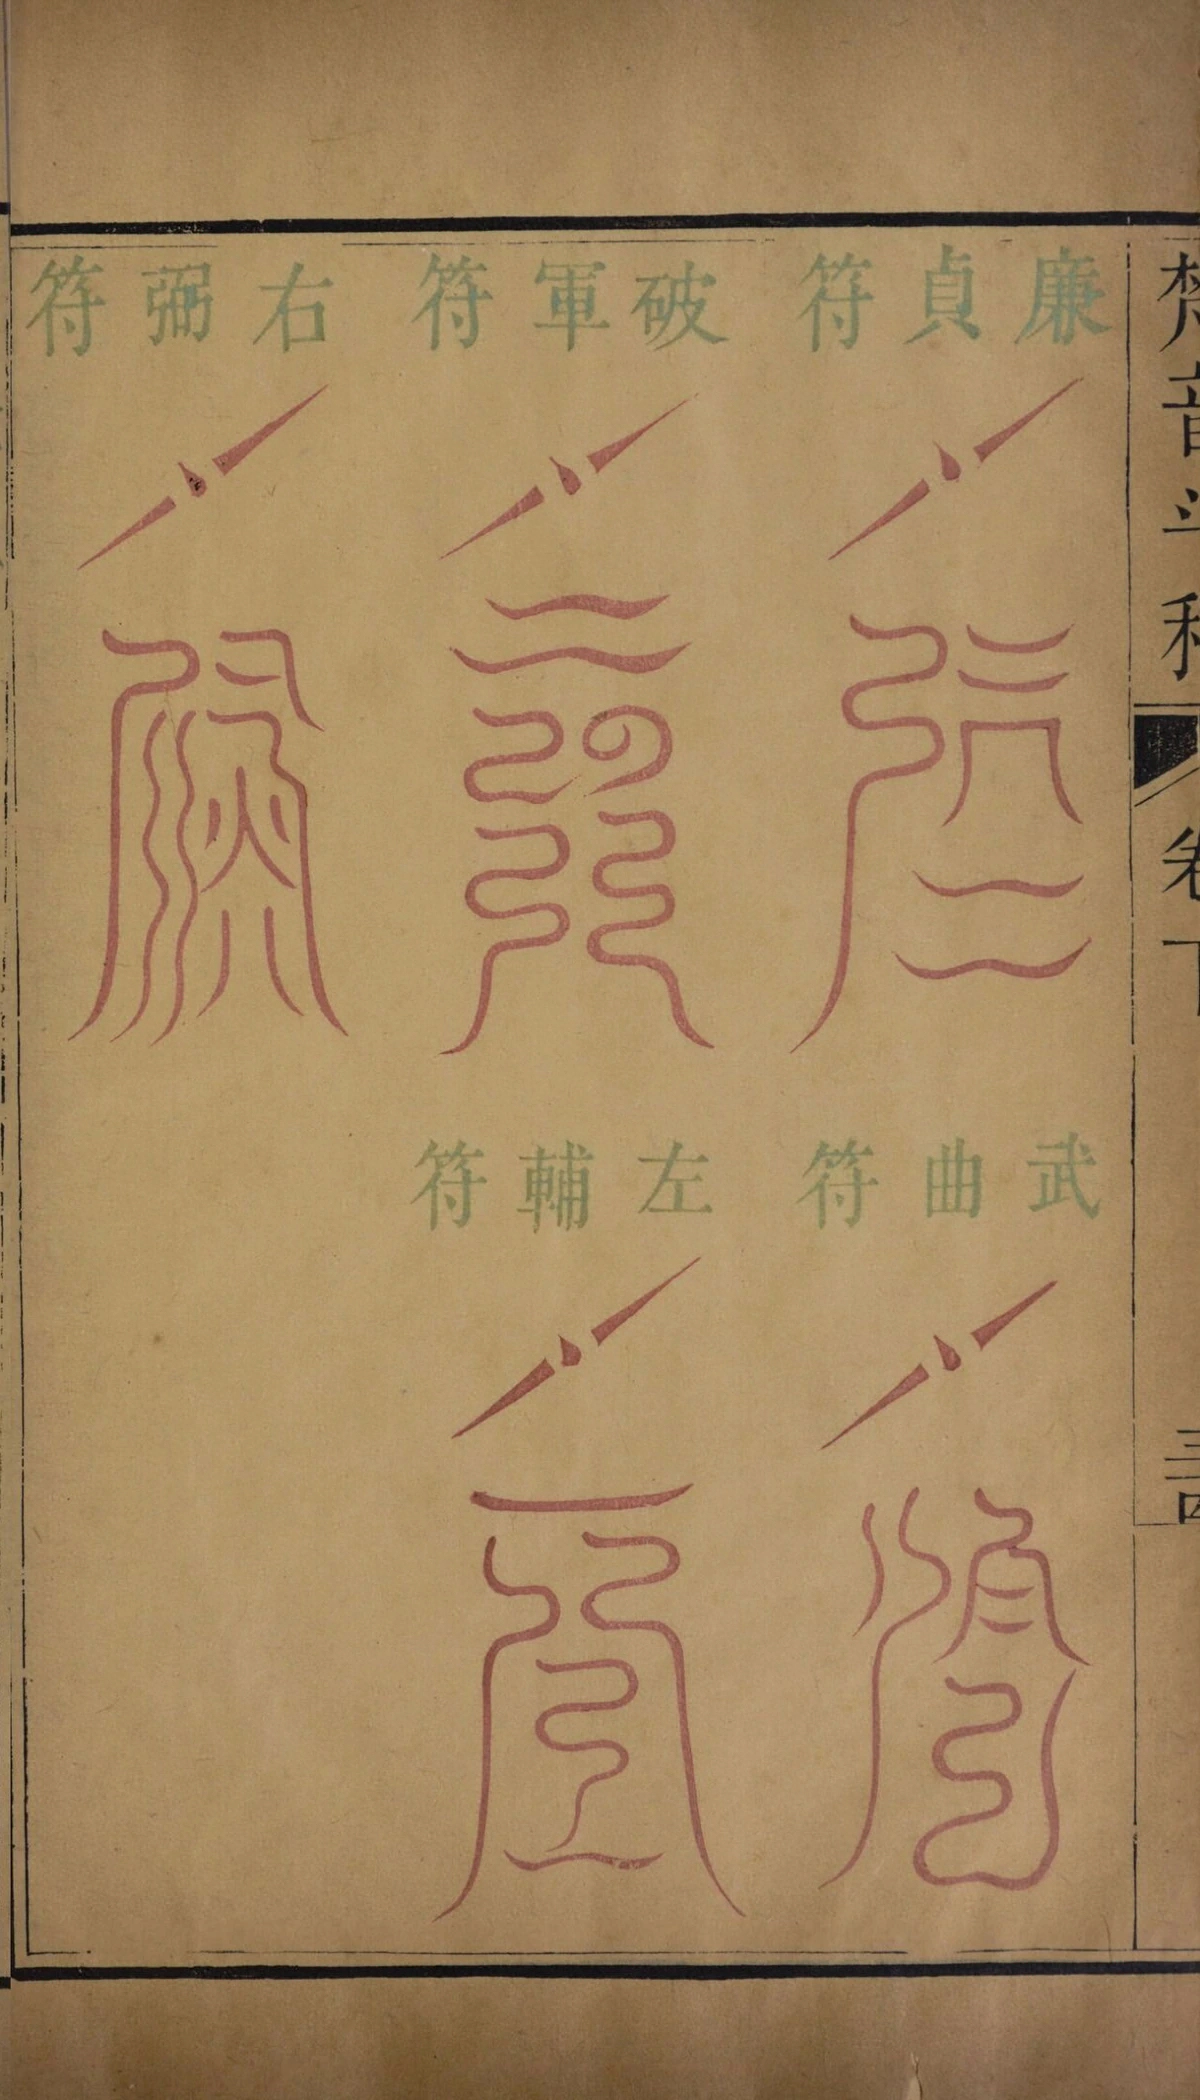 梵音斗科
卷下
三四
廉貞符
武曲符
破軍符
左輔符
右弼符